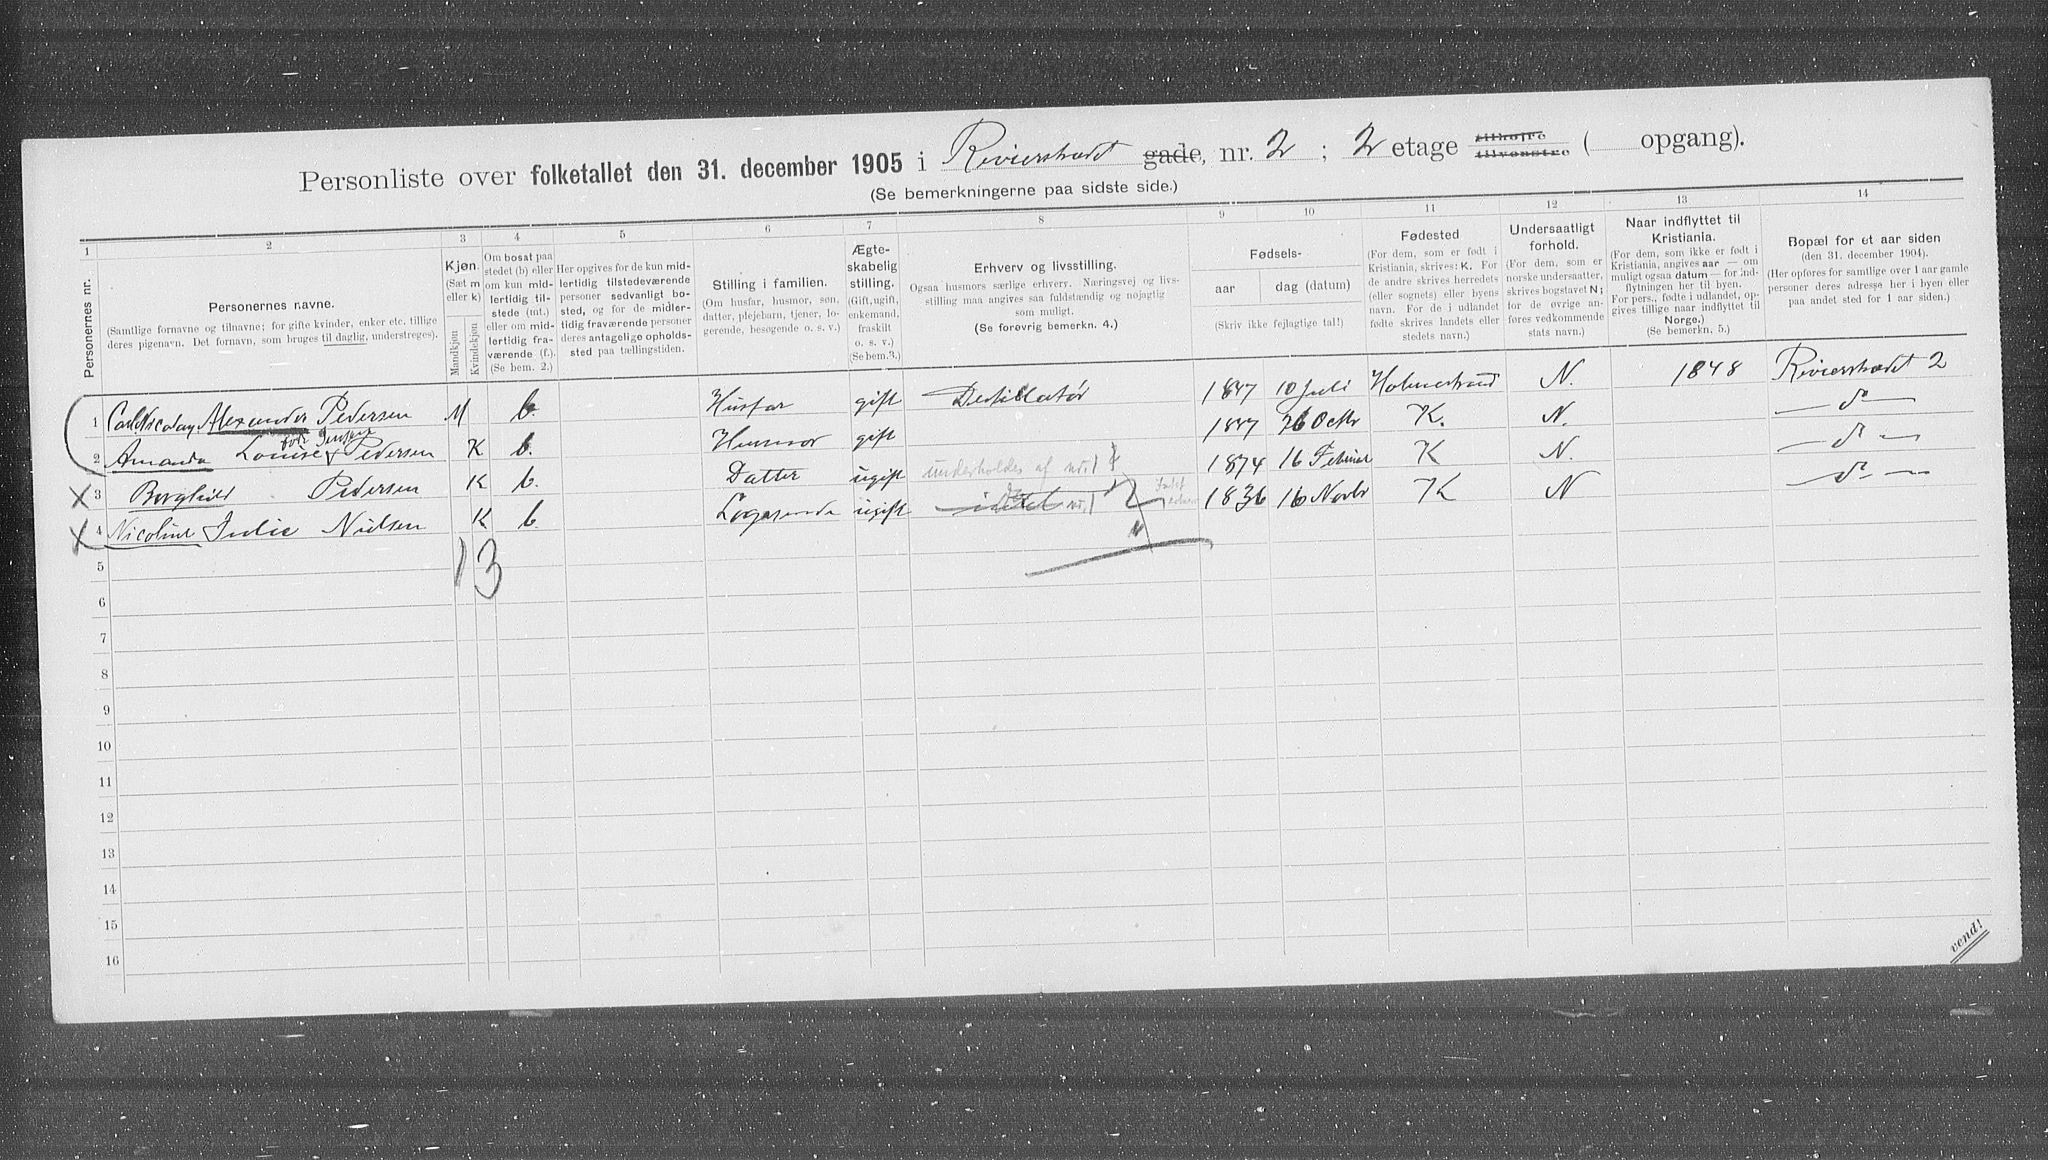 Personliste over folketallet den 31. december 1905 i Revierstrædet gade, nr. 2 ; 2 etage tilhøjre tilvenstre ( opgang).
(Se bemerkningerne paa sidste side.)
1 2 3 4 5 6 7 8 9 10 11 12 13 14
Personernes nr.
Personernes navne.
(Samtlige fornavne og tilnavne; for gifte kvinder, enker etc. tillige
deres pigenavn. Det fornavn, som bruges til daglig, understreges).
Kjøn.
(Sæt m
eller k)
Mandkjøn
Kvindekjøn
Om bosat paa
stedet (b) eller
om kun mid-
lertidig til-
stede (mt.)
eller om mid-
lertidig fra-
værende (f.).
(Se bem. 2.)
Her opgives for de kun mid-
lertidig tilstedeværende
personer sedvanligt bo-
sted, og for de midler-
tidig fraværende personer
deres antagelige opholds-
sted paa tællingstiden.
Stilling i familien.
(Om husfar, husmor, søn,
datter, plejebarn, tjener, lo-
gerende, besøgende o. s. v.)
Ægte-
skabelig
stilling.
(Gift, ugift,
enkemand,
fraskilt
o. s. v.)
(Se bem. 3.)
Erhverv og livsstilling.
Ogsaa husmors særlige erhverv. Næringsvej og livs-
stilling maa angives saa fuldstændig og nøjagtig
som muligt.
(Se forøvrig bemerkn. 4.)
Fødsels-
aar dag (datum)
(Skriv ikke fejlagtige tal!)
Fødested
(For dem, som er født i
Kristiania, skrives: K. For
de andre skrives herredets
(eller sognets) eller byens
navn. For de i udlandet
fødte skrives landets eller
stedets navn.)
Undersaatligt
forhold.
(For dem, som er
norske undersaatter,
skrives bogstavet N;
for de øvrige an-
føres vedkommende
stats navn.)
Naar indflyttet til
Kristiania.
(For dem, som ikke er født i
Kristiania, angives aar — om
muligt ogsaa datum — for ind-
flytningen her til byen.
For pers., fødte i udlandet, op-
gives tillige naar indflyttet til
Norge.)
(Se bemerkn. 5.)
Bopæl for et aar siden
(den 31. december 1904).
(Her opføres for samtlige over 1 aar gamle
personer deres adresse her i byen eller
paa andet sted for 1 aar siden.)
1 Alexander Pedersen M b. Husfar gift Destillatør 1847 10 Juli Holmestrand N. 1848 Revierstrædet 2
født Jensen
2 Amanda Louise Pedersen K b. Husmor gift 1847 26 Octbr K. N. — do —
3 Borghild Pedersen K b. Datter ugift underholdes af nr. 1 1874 16 Februar K N. — do —
4 Nicoline Julie Nielsen K b. Logerende ugift nr. 1 1836 16 Novbr K N — do —
1 3
5
6
7
8
9
10
11
12
13
14
15
16
vend!